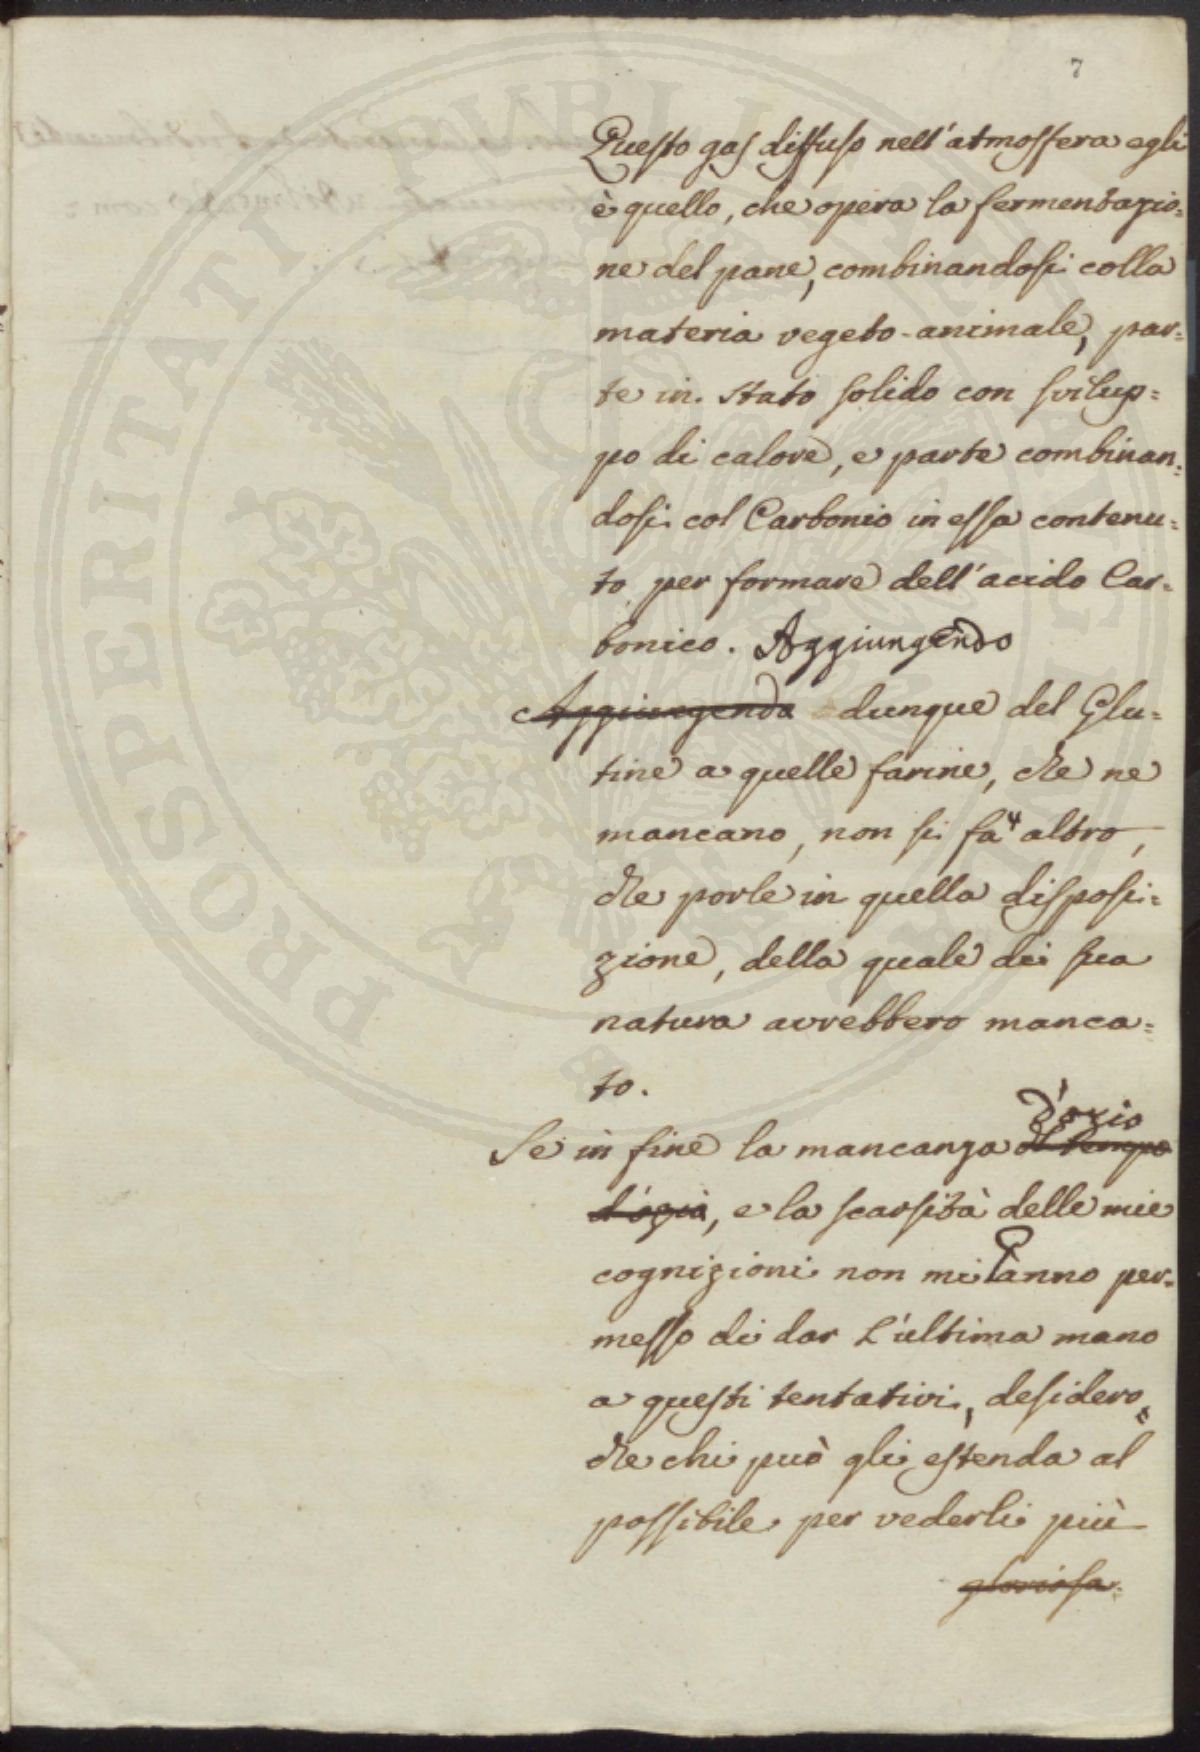 7
Questo gas diffuso nell'atmosfera egli
è quello, che opera la fermentazio=
ne del pane, combinandosi colla
materia vegeto-animale, par=
te in stato solido con svilup=
po di calore, e parte combinan=
dosi col Carbonio in essa contenu=
to per formare dell'acido Car=
bonico. Aggiungendo
Aggiungendo dunque del Glu=
tine a quelle farine, che ne
mancano, non si fà altro,
che porle in quella disposi=
zione, della quale di sua
natura avrebbero manca=
to.
d'ozio
Se in fine la mancanza di tempo
d'ozio, e la scarsità delle mie
cognizioni non mi ànno per=
messo di dar l'ultima mano
a questi tentativi, desidero,
che chi può gli estenda al
possibile per vederli più
gloriosa.
PROSPERITATI PUBLICAE